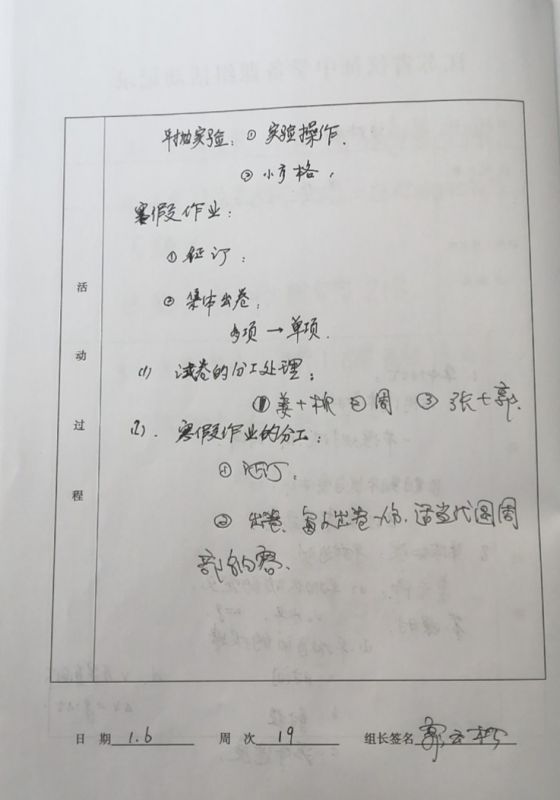 平抛实验：① 实验操作．
② 小方格，
寒假作业：
① 征订；
② 集体出卷，
多项 → 单项．
(1) 试卷的分工处理：
① 姜+ ② 周 ③ 张+郭．
(2)．寒假作业的分工：
① 征订．
② 出卷、每人出卷一份，适当代圆周
部分内容．
活动过程
日 期 1.6 周 次 19 组长签名 郭